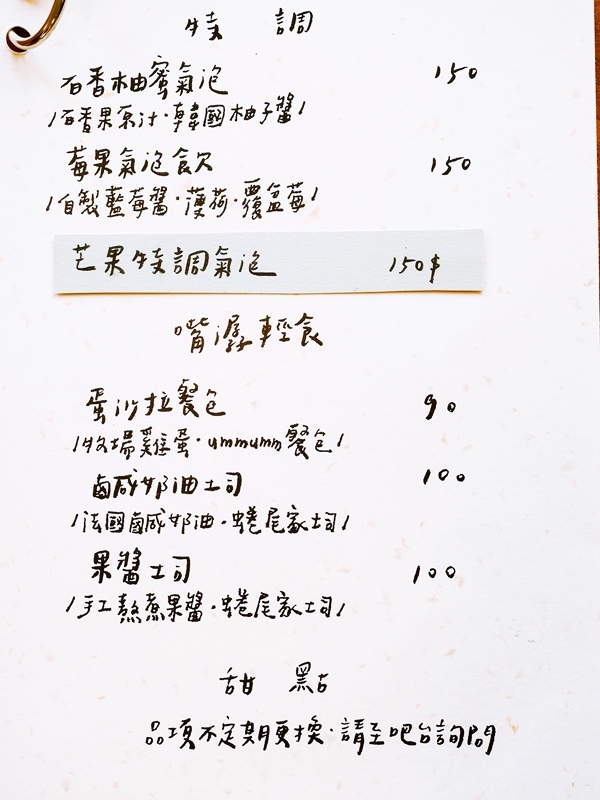 特 調
百香柚蜜氣泡 150
/百香果原汁·韓國柚子醬/
莓果氣泡飲 150
/自製藍莓醬·薄荷·覆盆莓/
芒果特調氣泡 150$
嘴潺輕食
蛋沙拉餐包 90
/牧場雞蛋·ummumm餐包/
鹹奶油土司 100
/法國鹹奶油·蜷尾家土司/
果醬土司 100
/手工熬煮果醬·蜷尾家土司/
甜 點
品項不定期更換·請至吧台詢問